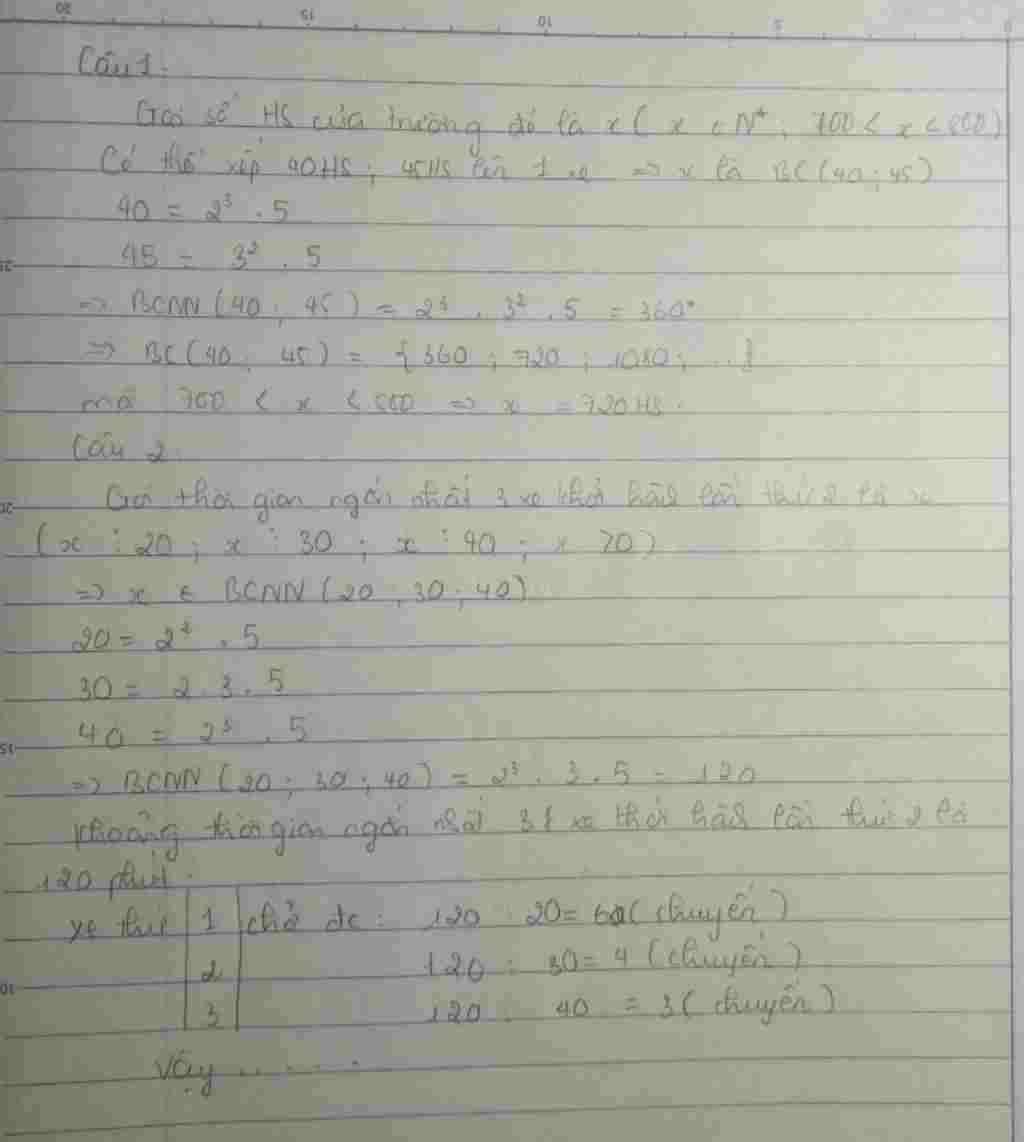 Câu 1.
Gọi số HS của trường đó là x ( x ∈ N*, 700 < x < 800)
Có thể xếp 40HS; 45HS lên 1 xe => x là BC(40; 45)
40 = 2³ . 5
45 = 3² . 5
=> BCNN(40; 45) = 2³ . 3² . 5 = 360
=> BC(40; 45) = {360; 720; 1080; ...}
mà 700 < x < 800 => x = 720 HS.
Câu 2
Gọi thời gian ngắn nhất 3 xe khởi hành lần thứ 2 là x
(x ⋮ 20; x ⋮ 30; x ⋮ 40; x > 0)
=> x ∈ BCNN(20; 30; 40)
20 = 2² . 5
30 = 2 . 3 . 5
40 = 2³ . 5
=> BCNN(20; 30; 40) = 2³ . 3 . 5 = 120
Khoảng thời gian ngắn nhất 3 xe khởi hành lần thứ 2 là
120 phút.
xe thứ 1 chở đc: 120 : 20 = 6 (chuyến)
2 120 : 30 = 4 (chuyến)
3 120 : 40 = 3 (chuyến)
Vậy .....